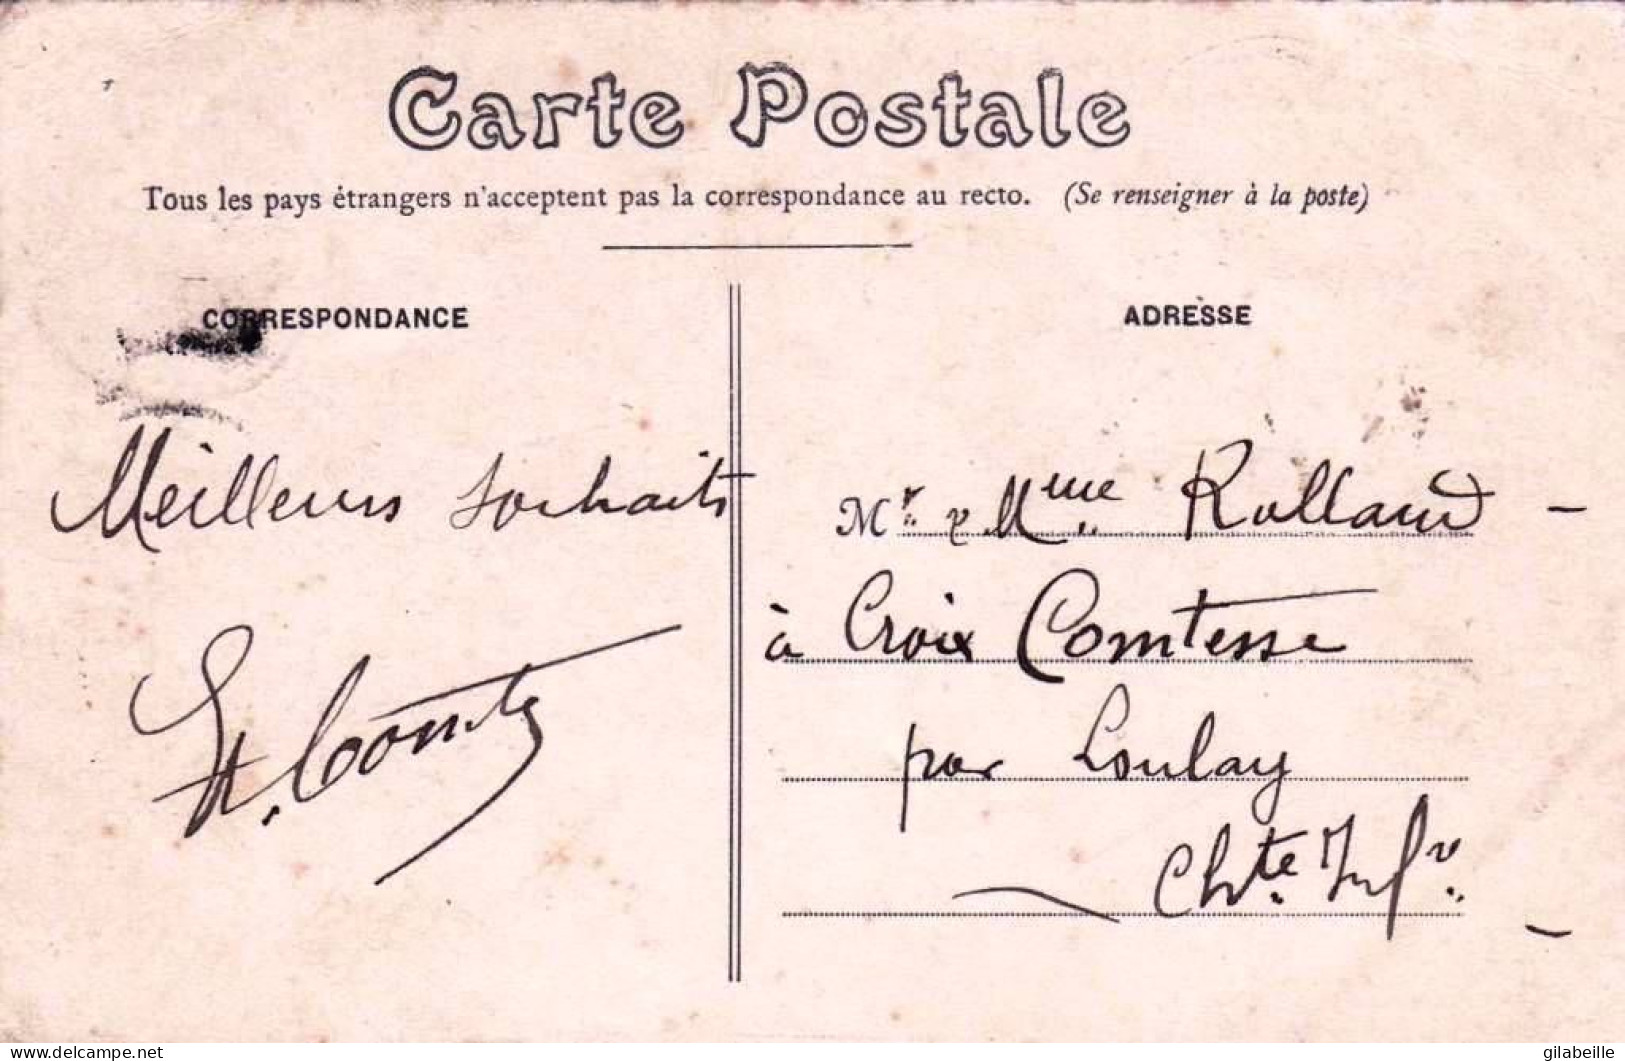 Carte Postale
Tous les pays étrangers n'acceptent pas la correspondance au recto. (Se renseigner à la poste)
CORRESPONDANCE
Meilleurs souhaits
H. Comte
ADRESSE
Mr. & Mme Rolland —
à Croix Comtesse
par Loulay
Chte. Infre.
gilabeille